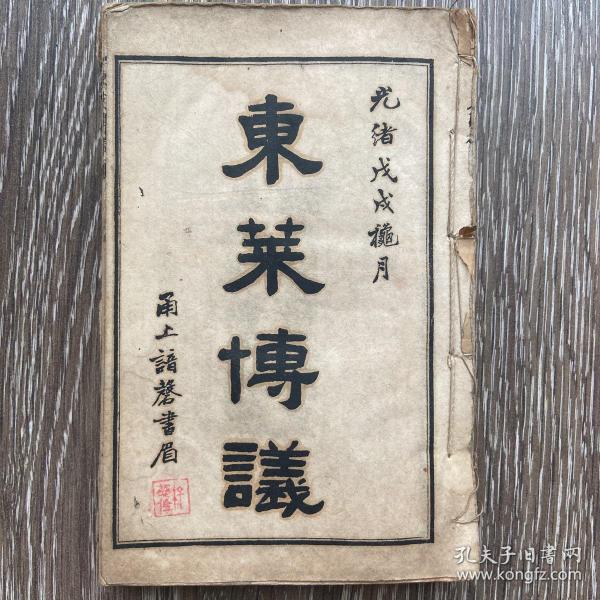 光緒戊戌龝月
東萊博議
甬上語磬書眉
孔夫子旧書网
www.kongfz.com